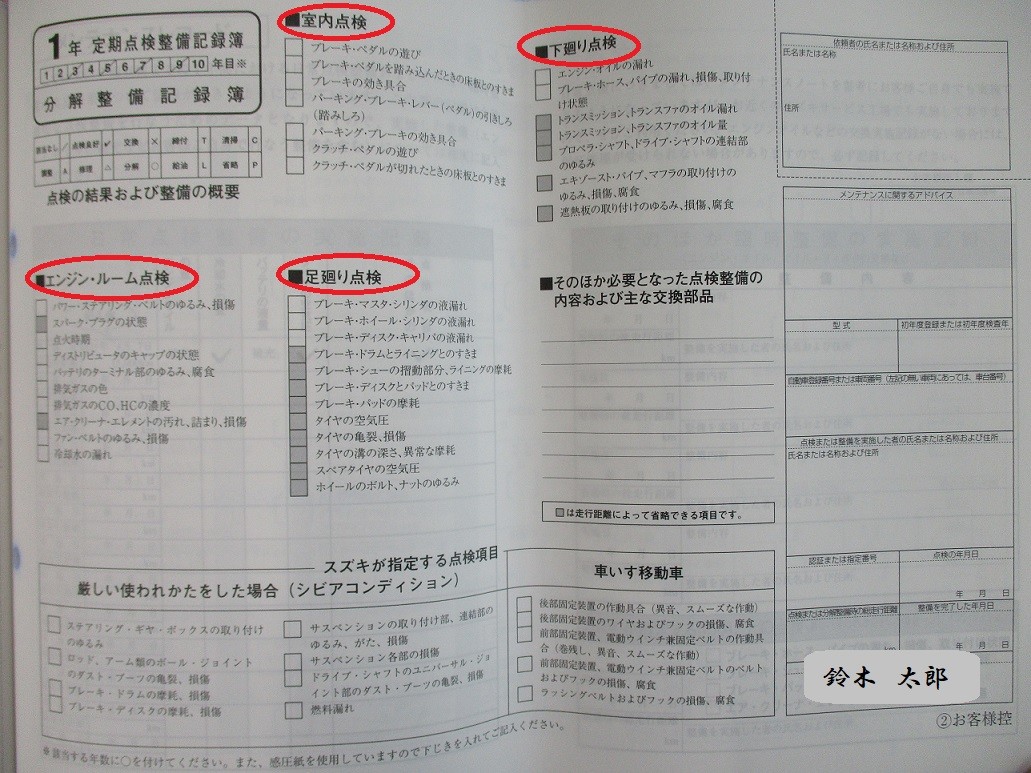 1年 定期点検整備記録簿
1 2 3 4 5 6 7 8 9 10 年目※
分解整備記録簿
該当なし / 点検良好 レ 交換 × 締付 T 清掃 C
調整 A 修理 △ 分解 ○ 給油 L 省略 P
点検の結果および整備の概要
■室内点検
ブレーキ・ペダルの遊び
ブレーキ・ペダルを踏み込んだときの床板とのすきま
ブレーキの効き具合
パーキング・ブレーキ・レバー(ペダル)の引きしろ
(踏みしろ)
パーキング・ブレーキの効き具合
クラッチ・ペダルの遊び
クラッチ・ペダルが切れたときの床板とのすきま
■エンジン・ルーム点検
パワー・ステアリング・ベルトのゆるみ、損傷
スパーク・プラグの状態
点火時期
ディストリビュータのキャップの状態
バッテリのターミナル部のゆるみ、腐食
排気ガスの色
排気ガスのCO、HCの濃度
エア・クリーナ・エレメントの汚れ、詰まり、損傷
ファン・ベルトのゆるみ、損傷
冷却水の漏れ
■足廻り点検
ブレーキ・マスタ・シリンダの液漏れ
ブレーキ・ホイール・シリンダの液漏れ
ブレーキ・ディスク・キャリパの液漏れ
ブレーキ・ドラムとライニングとのすきま
ブレーキ・シューの摺動部分、ライニングの摩耗
ブレーキ・ディスクとパッドとのすきま
ブレーキ・パッドの摩耗
タイヤの空気圧
タイヤの亀裂、損傷
タイヤの溝の深さ、異常な摩耗
スペアタイヤの空気圧
ホイールのボルト、ナットのゆるみ
■下廻り点検
エンジン・オイルの漏れ
ブレーキ・ホース、パイプの漏れ、損傷、取り付
け状態
トランスミッション、トランスファのオイル漏れ
トランスミッション、トランスファのオイル量
プロペラ・シャフト、ドライブ・シャフトの連結部
のゆるみ
エキゾースト・パイプ、マフラの取り付けの
ゆるみ、損傷、腐食
遮熱板の取り付けのゆるみ、損傷、腐食
■そのほか必要となった点検整備の
内容および主な交換部品
■は走行距離によって省略できる項目です。
スズキが指定する点検項目
厳しい使われかたをした場合(シビアコンディション)
ステアリング・ギヤ・ボックスの取り付け
のゆるみ
ロッド、アーム類のボール・ジョイント
のダスト・ブーツの亀裂、損傷
ブレーキ・ドラムの摩耗、損傷
ブレーキ・ディスクの摩耗、損傷
サスペンションの取り付け部、連結部の
ゆるみ、がた、損傷
サスペンション各部の損傷
ドライブ・シャフトのユニバーサル・ジョ
イント部のダスト・ブーツの亀裂、損傷
燃料漏れ
車いす移動車
後部固定装置の作動具合(異音、スムーズな作動)
後部固定装置のワイヤおよびフックの損傷、腐食
前部固定装置、電動ウインチ兼固定ベルトの作動具
合(巻残し、異音、スムーズな作動)
前部固定装置、電動ウインチ兼固定ベルトのベルト
およびフックの損傷、腐食
ラッシングベルトおよびフックの損傷、腐食
※該当する年数に○を付けてください。また、感圧紙を使用していますので下じきを入れてご記入ください。
依頼者の氏名または名称および住所
氏名または名称
住所
メンテナンスに関するアドバイス
型式 初年度登録または初年度検査年
自動車登録番号または車両番号(左記の無い車両にあっては、車台番号)
点検または整備を実施した者の氏名または名称および住所
氏名または名称および住所
認証または指定番号 点検の年月日
年 月 日
点検または分解整備時の総走行距離 整備を完了した年月日
年 月 日
鈴木 太郎
②お客様控